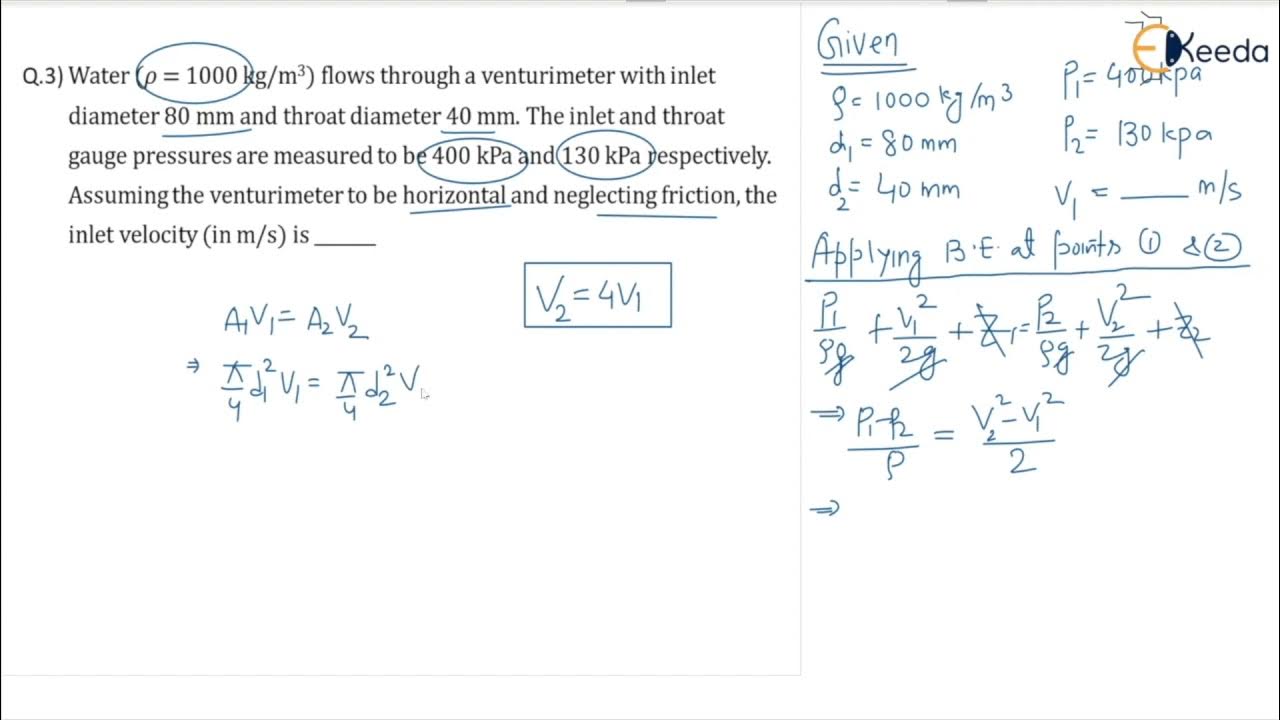 Q.3) Water (ρ = 1000 kg/m³) flows through a venturimeter with inlet
diameter 80 mm and throat diameter 40 mm. The inlet and throat
gauge pressures are measured to be 400 kPa and 130 kPa respectively.
Assuming the venturimeter to be horizontal and neglecting friction, the
inlet velocity (in m/s) is _____
V₂ = 4V₁
A₁V₁ = A₂V₂
⇒ π/4 d₁² V₁ = π/4 d₂² V
Given
EKeeda
ρ = 1000 kg/m³
d₁ = 80 mm
d₂ = 40 mm
P₁ = 400 kpa
P₂ = 130 kpa
V₁ = ____ m/s
Applying B.E. at points ① & ②
P₁/ρg + V₁²/2g + Z₁ = P₂/ρg + V₂²/2g + Z₂
⇒ P₁-P₂/ρ = V₂²-V₁²/2
⇒